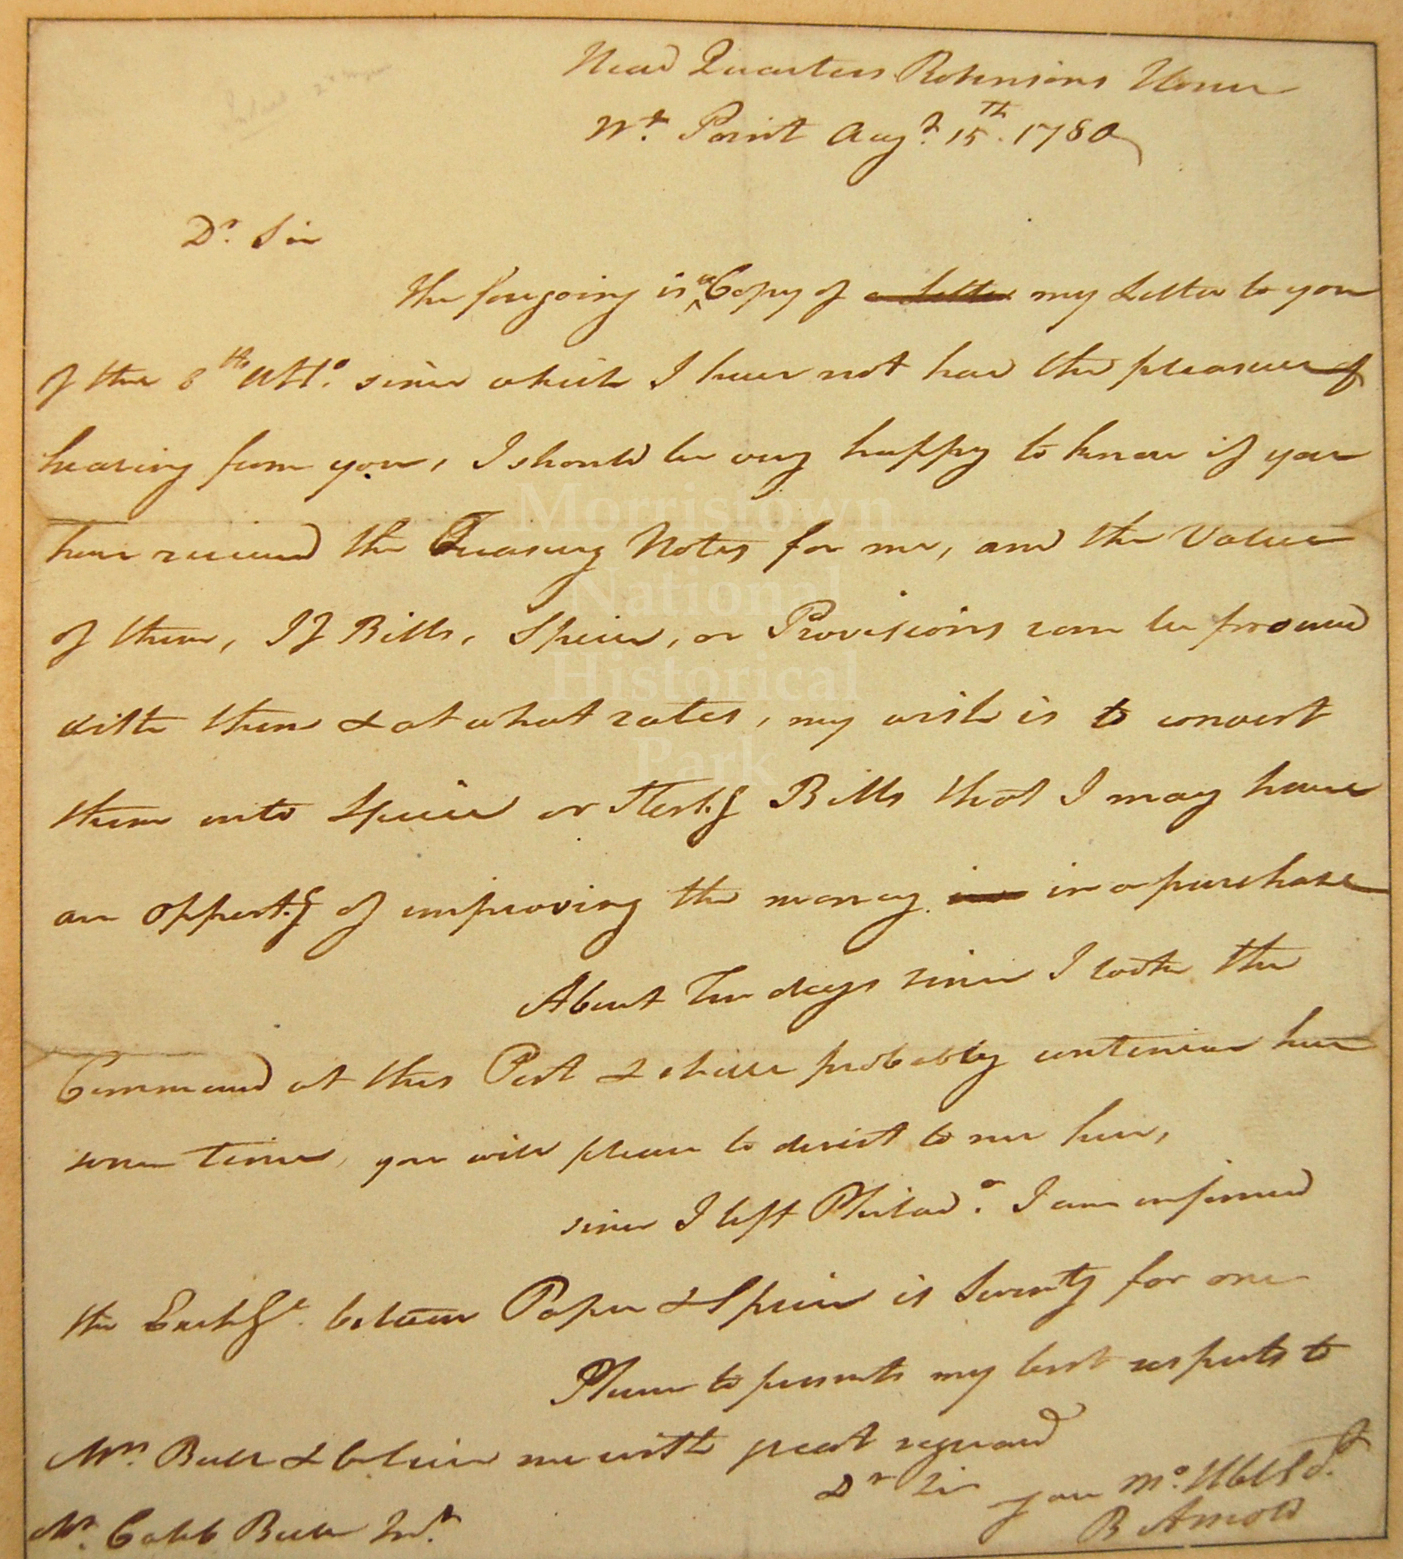 Head Quarters Robinsons House
Wt. Point Augt. 15th. 1780
Dr. Sir
The foregoing is a Copy of a letter my Letter to you
of the 8th Ulto. since which I have not had the pleasure of
hearing from you, I should be very happy to know if you
have received the Treasury Notes for me, and the Value
of them, If Bills, Specie, or Provisions can be procured
with them & at what rates, my wish is to convert
them into Specie or Sterlg Bills that I may have
an opporty of improving the money in a purchase
About Ten days since I took the
Command at this Post & shall probably continue here
some time, you will please to direct to me here,
since I left Philada. I am informed
the Exchge. between Paper & Specie is Seventy for one
Please to presents my best respects to
Mrs. Bull & believe me with great regard
Dr Sir your Mo. Obt Sert
B Arnold
Mr. Caleb Bull Junr.
Morristown
National
Historical
Park